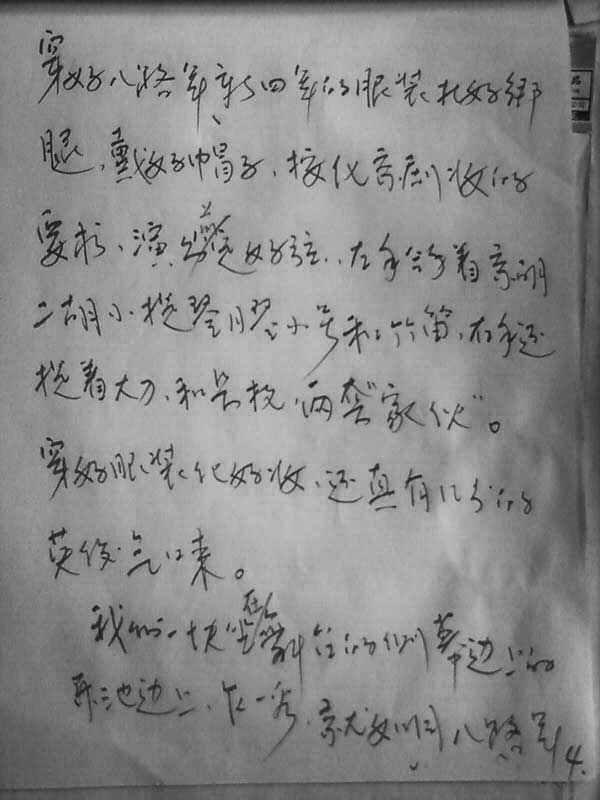 穿好八路军新四军的服装扎好绑
腿、戴好帽子、按化京剧妆的
要求、演员定好弦、左手拿着京胡
二胡小提琴月琴小号和竹笛、右手还
提着大刀、和长枪、两套“家伙”。
穿好服装化好妆、还真有几分的
英俊气口来。
我们一块坐在舞台的侧幕边上的
乐池边上、乍一看、就如同八路军
4.